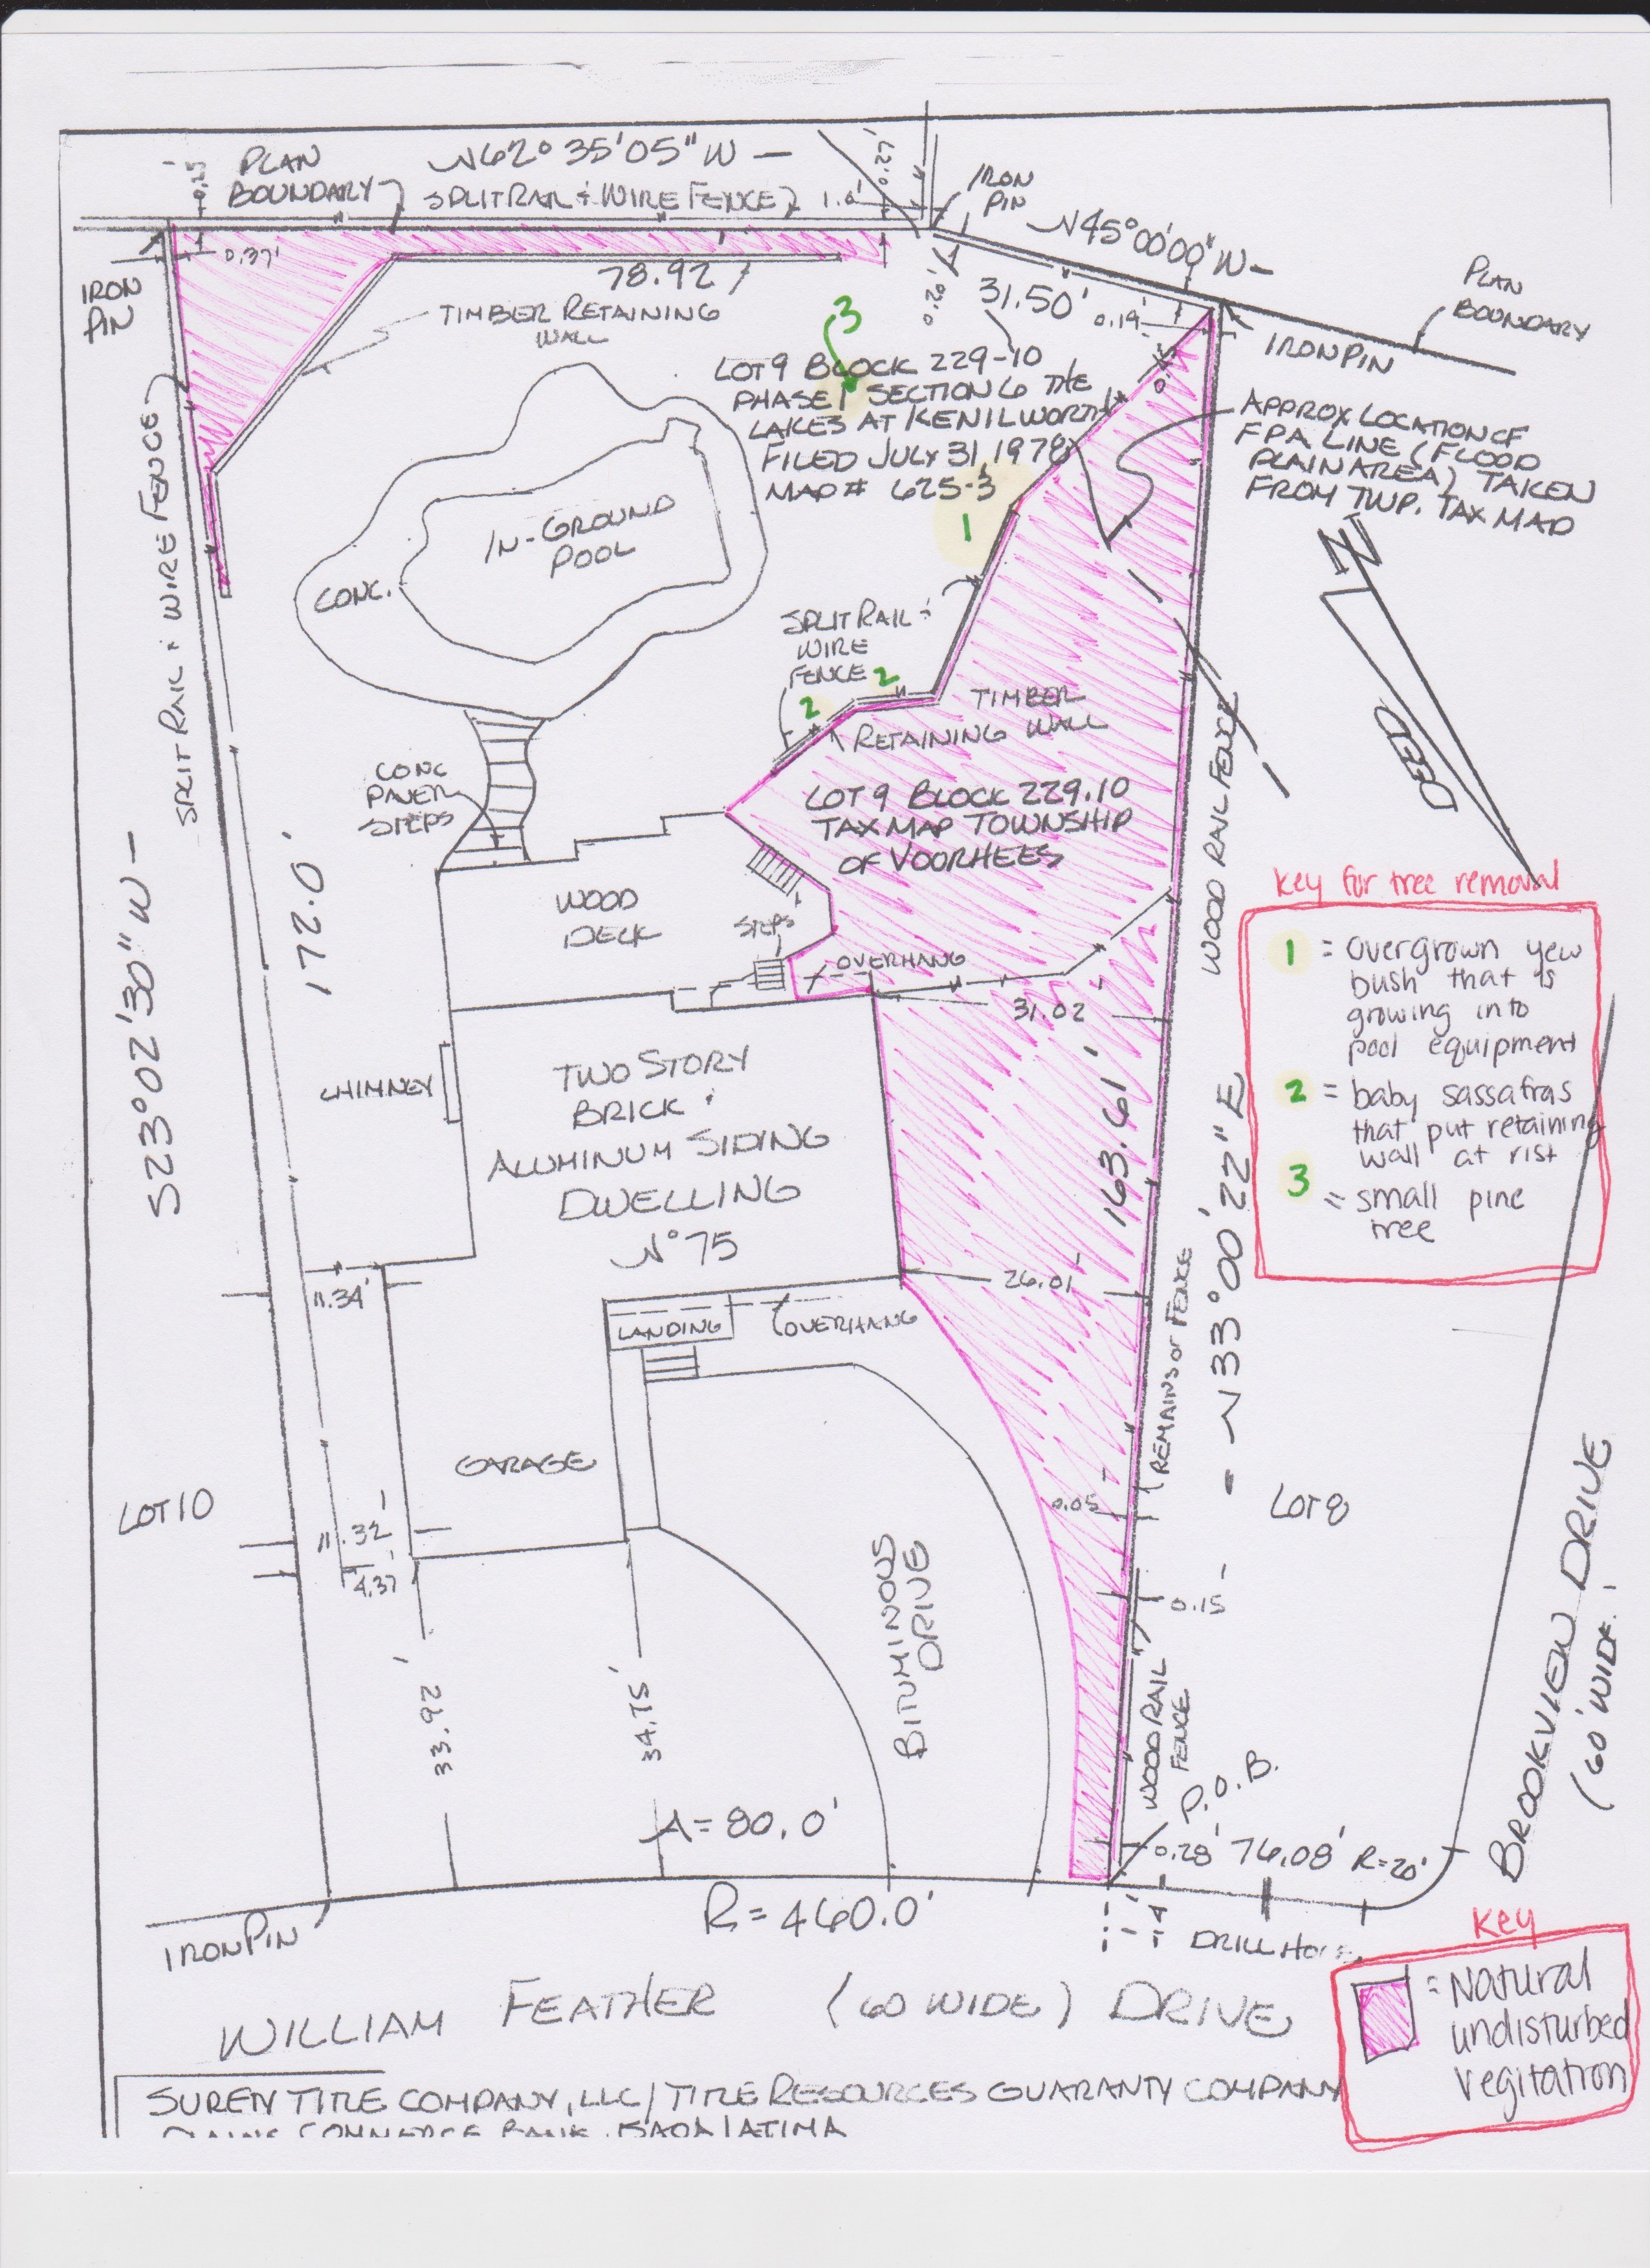 PLAN
BOUNDARY
N62° 35' 05" W —
SPLIT RAIL & WIRE FENCE
0.27'
1.0'
IRON
PIN
N45°00'00" W —
PLAN
BOUNDARY
0.37'
IRON
PIN
78.92'
TIMBER RETAINING
WALL
0.20'
31.50'
0.19
IRON PIN
3
LOT 9 BLOCK 229-10
PHASE 1 SECTION 6 THE
LAKES AT KENILWORTH
FILED JULY 31, 1978
MAP # 625-3
APPROX LOCATION OF
FPA LINE (FLOOD
PLAIN AREA) TAKEN
FROM TWP. TAX MAP
1
IN-GROUND
POOL
CONC.
SPLIT RAIL & WIRE FENCE
SPLIT RAIL &
WIRE
FENCE
2
2
TIMBER
RETAINING WALL
DEED
CONC
PAVER
STEPS
LOT 9 BLOCK 229.10
TAX MAP TOWNSHIP
OF VOORHEES
WOOD RAIL FENCE
S23°02'30" W —
172.0'
WOOD
DECK
STEPS
OVERHANG
31.02
Key for tree removal
1 = overgrown yew
bush that is
growing into
pool equipment
2 = baby sassafras
that put retaining
wall at rist
3 = small pine
tree
CHIMNEY
TWO STORY
BRICK &
ALUMINUM SIDING
DWELLING
N° 75
163.61'
N33°00'22" E
11.34'
26.01
LANDING
OVERHANG
REMAINS OF FENCE
GARAGE
0.05
LOT 10
LOT 8
11.32'
4.37'
0.15
BITUMINOUS
DRIVE
33.92'
34.75'
WOOD RAIL
FENCE
BROOKVIEW DRIVE
(60' WIDE
P.O.B.
A= 80.0'
0.28' 76.08' R=20'
R= 460.0'
IRON PIN
DRILL HOLE
WILLIAM FEATHER (60 WIDE) DRIVE
Key
= Natural
undisturbed
vegitation
SURETY TITLE COMPANY, LLC/ TITLE RESOURCES GUARANTY COMPANY